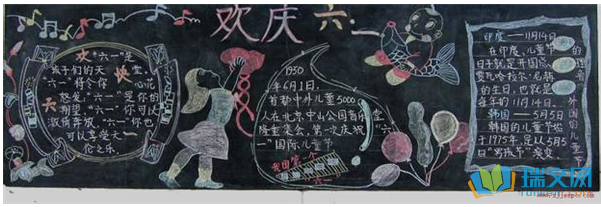 欢庆六一
欢"六一"是
孩子们的天堂,
"六一"将令你心花
怒放,"六一"是你的
期望,"六一"你可以
激扬奔放,"六一"你也
可以享受天
伦之乐。
1950
年6月1日,
首都中外儿童5000
人在北京中山公园音乐堂
隆重集会,第一次庆祝"六
一"国际儿童节
我国第一个
"六一"
印度——11月14日
在印度,儿童节
日子就是开国总
理尼赫鲁
的生日,也就是
每年的11月14日。
韩国——5月5日
韩国的儿童节始
于1975年,是从5月5
日"男孩节"演变
外国的儿童节
瑞文网